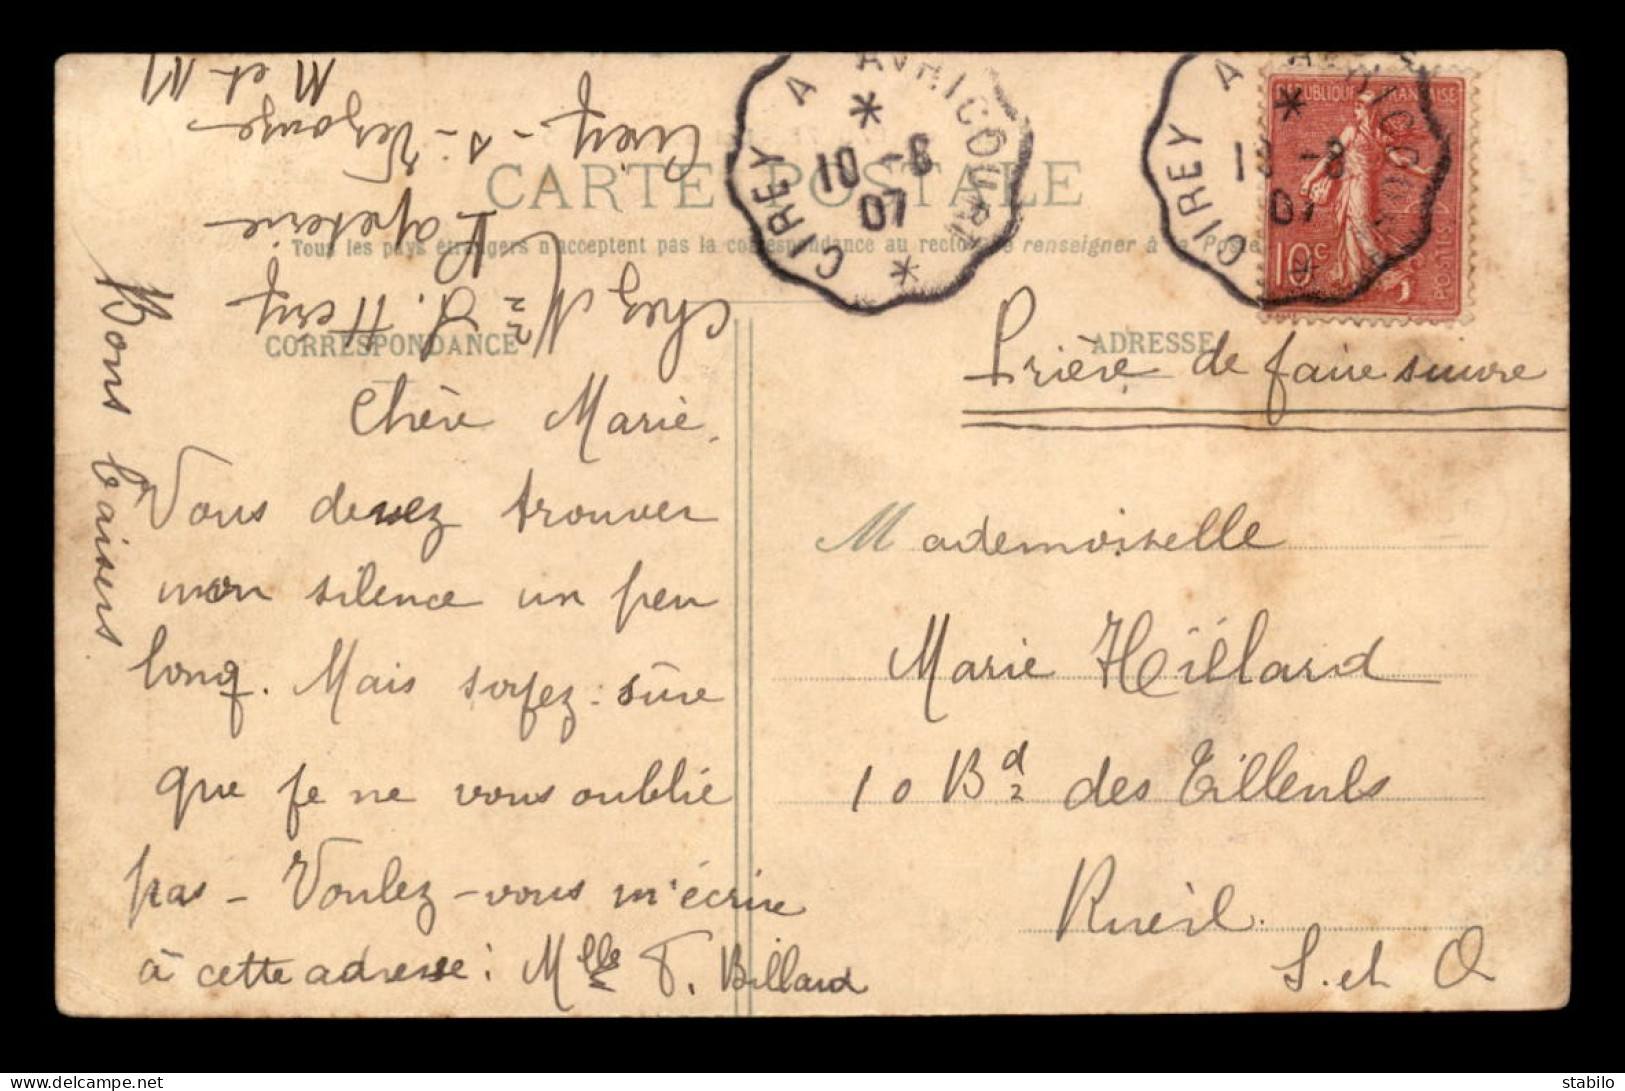 CARTE POSTALE
Tous les pays étrangers n'acceptent pas la correspondance au recto, se renseigner à la Poste
CORRESPONDANCE
ADRESSE
CIREY A AVRICOURT
10 -8
07
CIREY A AVRICOURT
10 -8
07
REPUBLIQUE FRANÇAISE
10c
POSTES
Prière de faire suivre
Chère Marie,
Vous devez trouver
mon silence un peu
long. Mais soyez sûre
que je ne vous oublie
pas - Voulez-vous m'écrire
à cette adresse : Mlle T. Billard
Chez Mr J. Henry
Papeterie
Cirey - s - Vezouze
M et M
Bons baisers
Mademoiselle
Marie Hëillard
10 Bd des Tilleuls
Rueil
S. et O
delcampe.net
stabilo